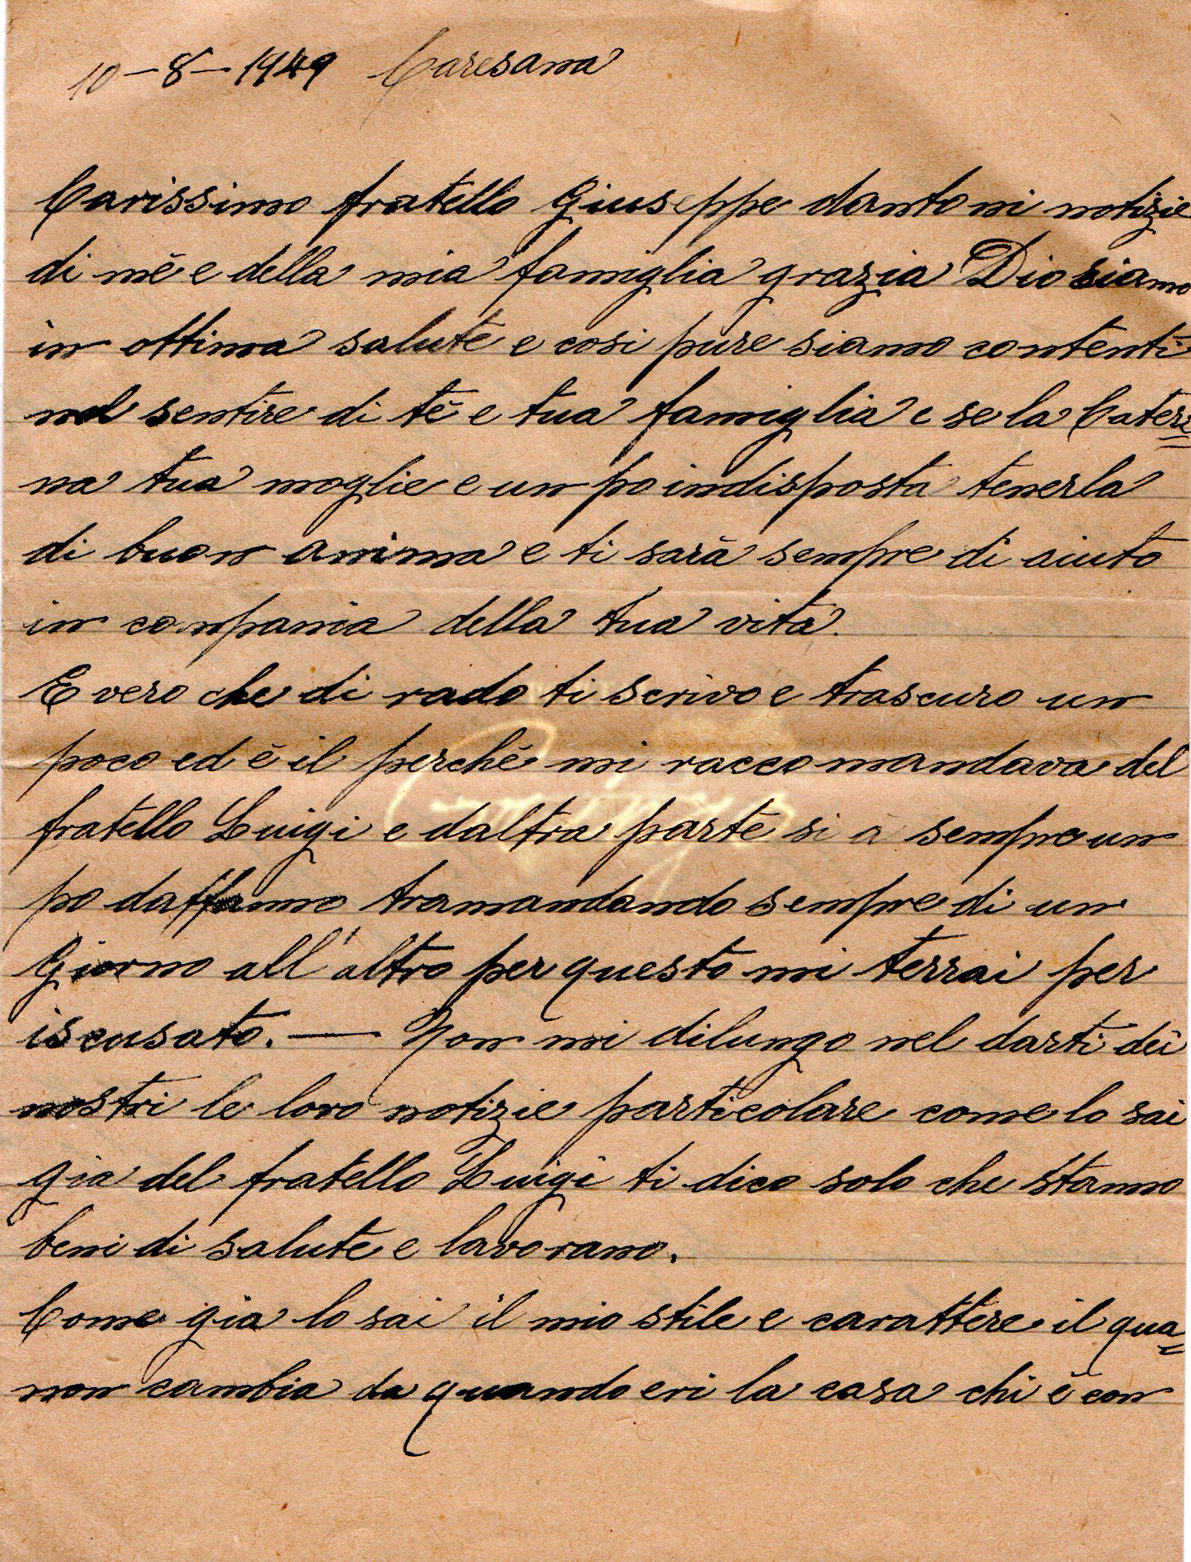 10-8-1949 Caresana
Carissimo fratello Giuseppe dantoni notizie
di mè e della mia famiglia grazia Dio siamo
in ottima salute e cosi pure siamo contenti
nel sentire di tè e tua famiglia e se la Cateri=
na tua moglie e un po indisposta tenerla
di buon anima e ti sarà sempre di aiuto
in compania della tua vita.
E vero che di rado ti scrivo e trascuro un
poco ed è il perchè mi raccomandava del
fratello Luigi e daltra parte si à sempre un
po daffanno tramandando sempre di un
Giorno all'altro per questo mi terrai per
iscusato. — Non mi dilungo nel darti dei
nostri le loro notizie particolare come lo sai
gia del fratello Luigi ti dico solo che stanno
beni di salute e lavorano.
Come gia lo sai il mio stile e carattere il qua=
non cambia da quando eri la casa chi è con